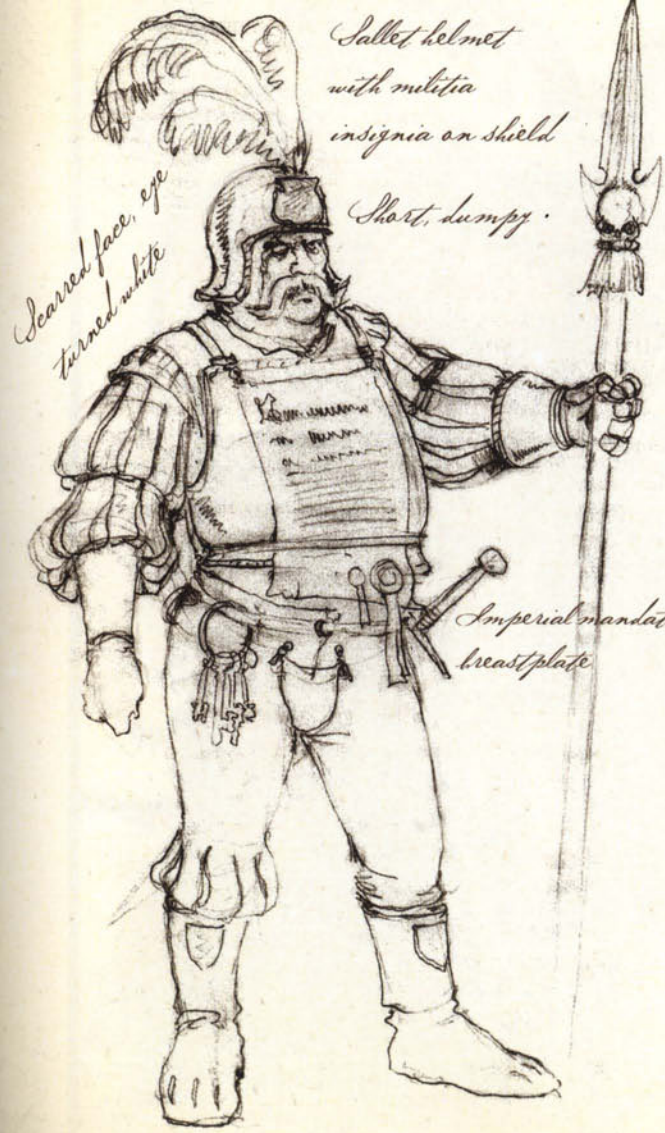 Sallet helmet
with militia
insignia on shield
Short, dumpy.
Scarred face, eye
turned white
Imperial mandat
breastplate